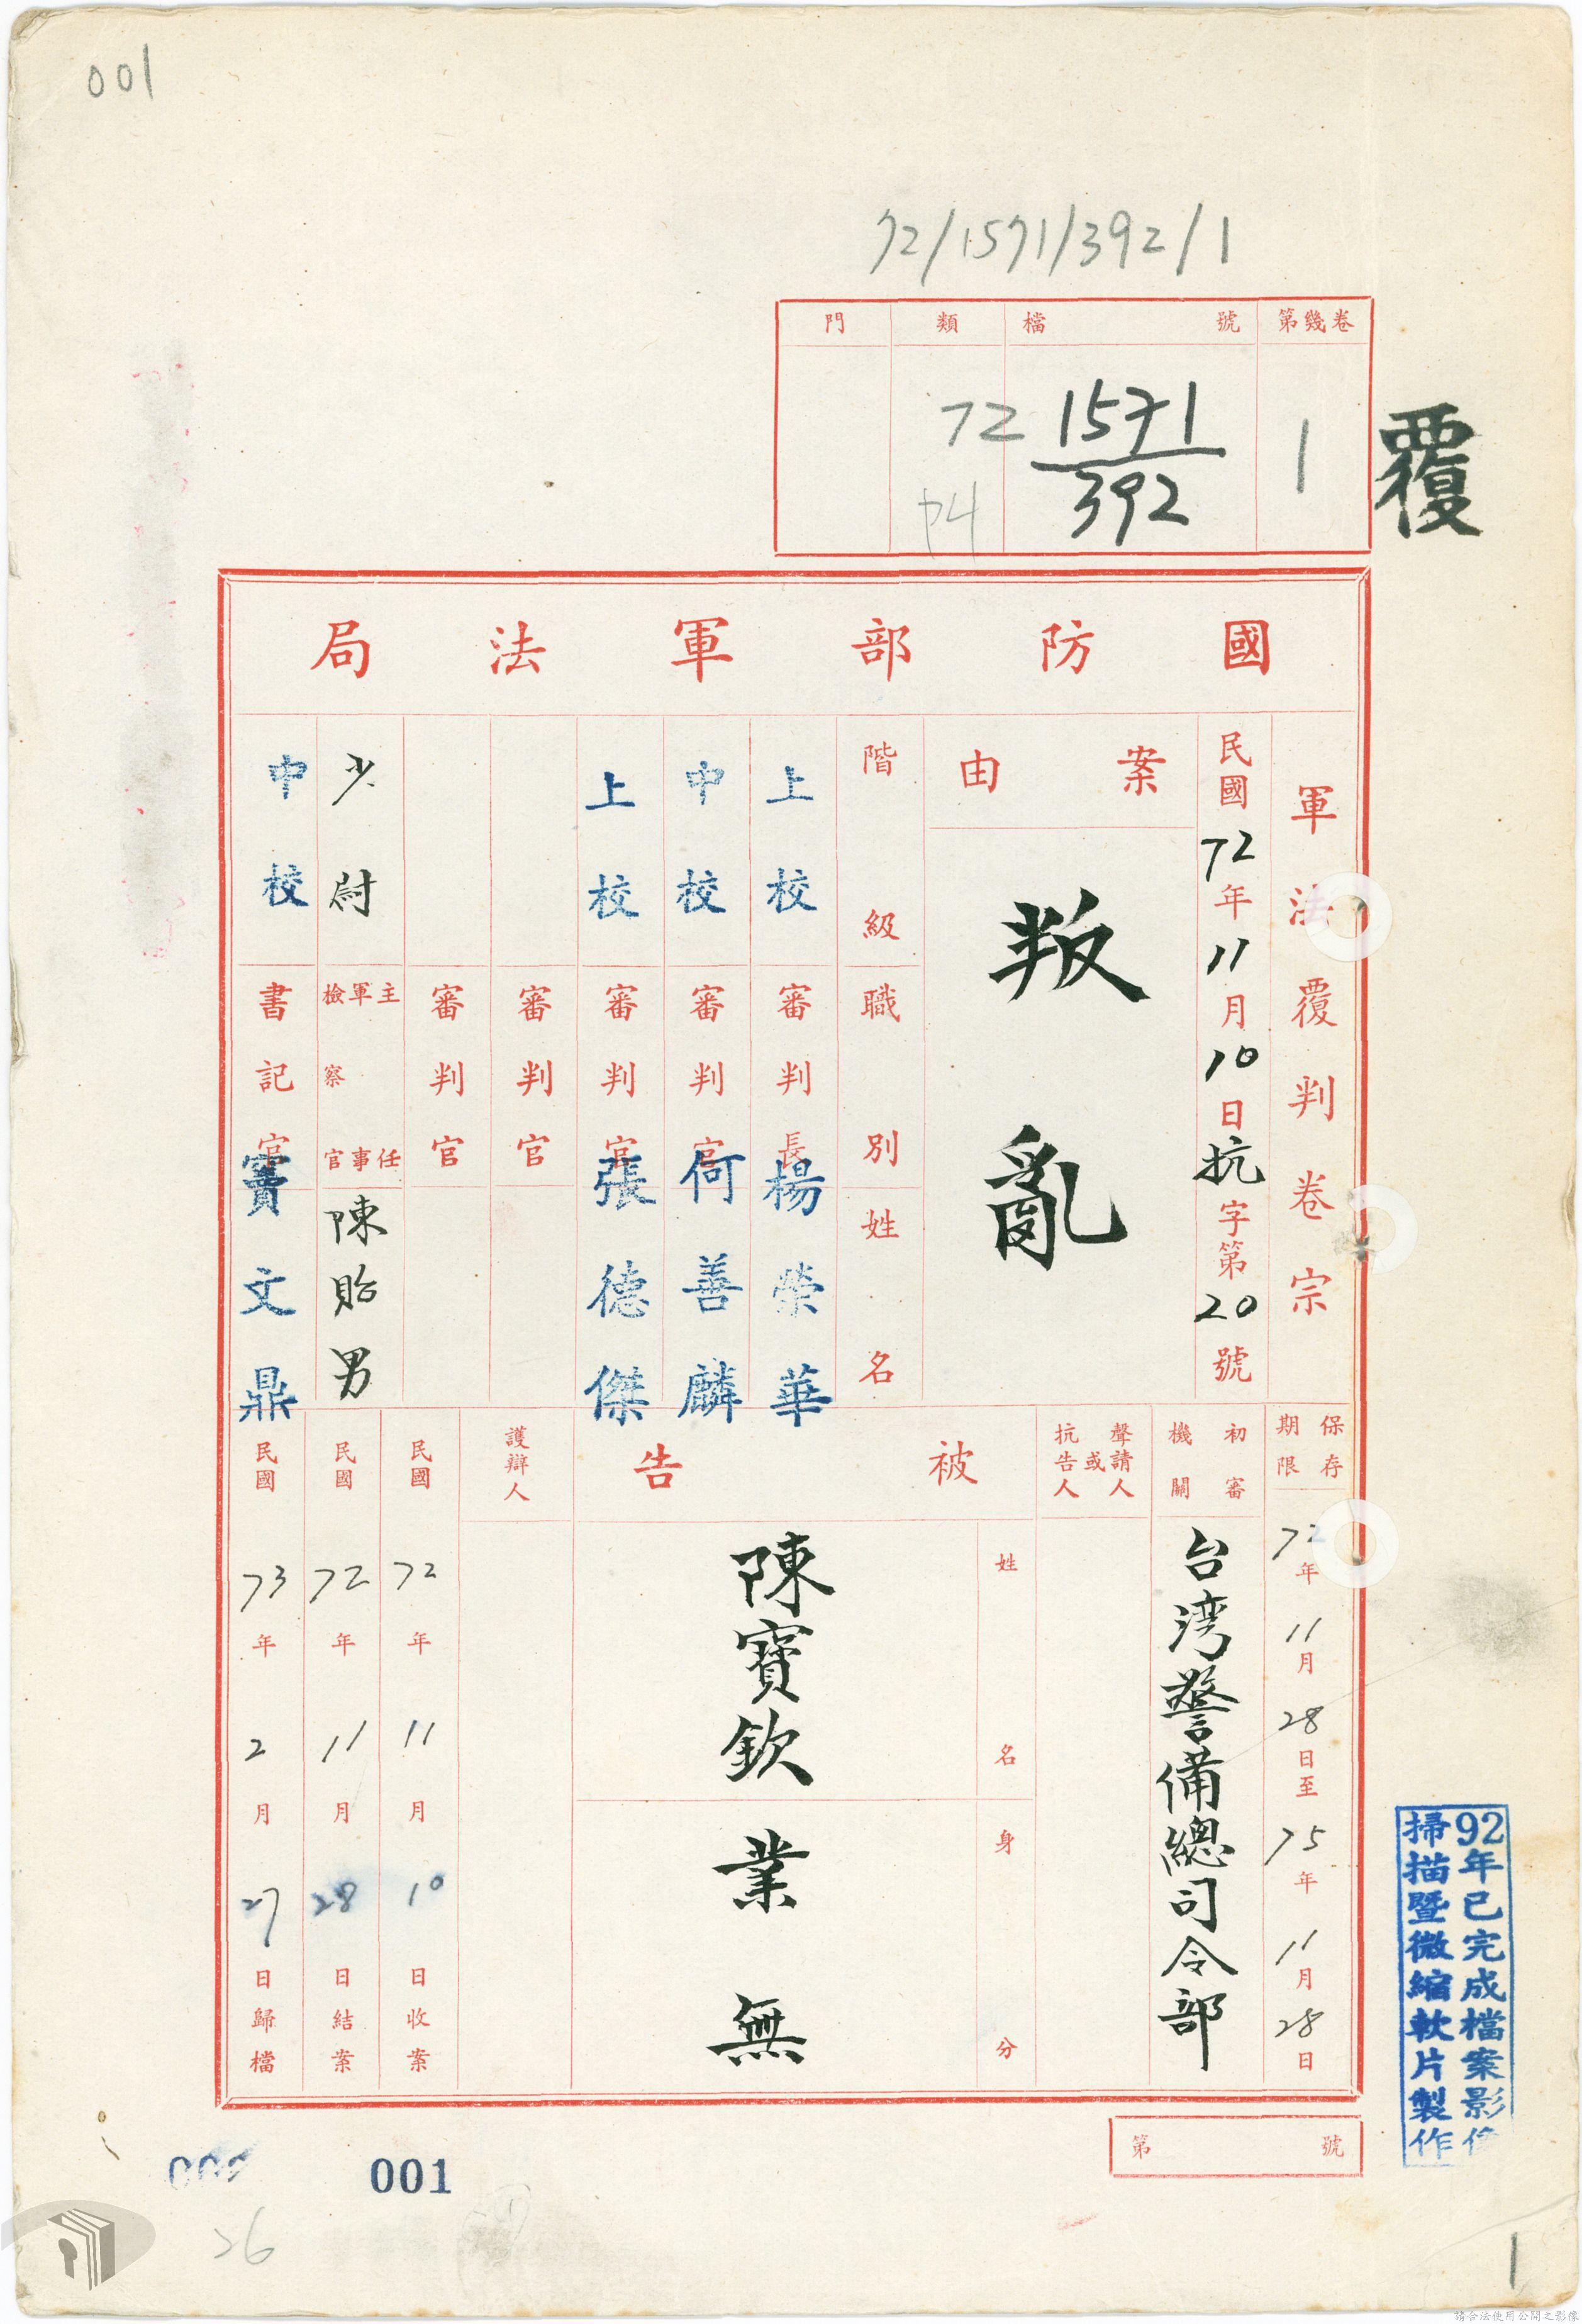 001
72/1571/392/1
第幾卷
1
檔號
1571
392
類
72
門
覆
國防部軍法局
軍法覆判卷宗
民國72年11月10日抗字第20號
案由
叛亂
階級 職別 姓名
上校 審判長 楊榮華
中校 審判官 何善麟
上校 審判官 張德傑
審判官
審判官
少尉 主任軍事檢察官 陳貽男
中校 書記官 竇文鼎
保存期限
72年11月28日至75年11月28日
初審機關
台湾警備總司令部
聲請人或抗告人
被告
姓名
陳寶欽
身分
業無
護辯人
民國72年11月10日收案
民國72年11月28日結案
民國73年2月27日歸檔
第號
92年已完成檔案影像
掃描暨微縮軟片製作
001
26
1
請合法使用公開之影像